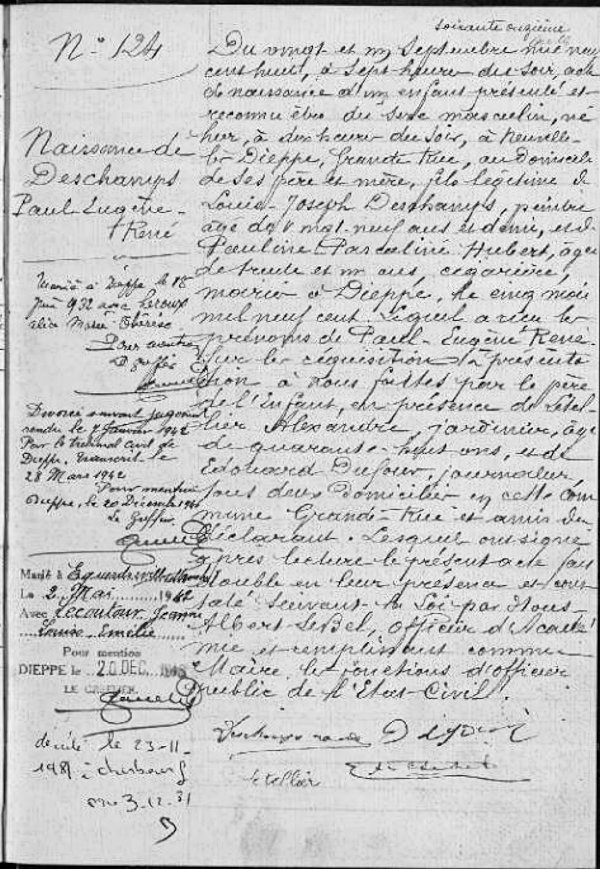 soixante onzième
N° 124
Naissance de
Deschamps
Paul Eugène
René
Marié à Dieppe le 18
Juin 932 avec Leroux
Marie Thérèse
Pour mention
Divorcé suivant jugement
rendu le 7 Janvier 1942
Par le tribunal civil de
Dieppe. Transcrit le
28 Mars 1942
Pour mention
Dieppe, le 20 Décembre
Le Greffier
Marié à
Le 2 Mai 194
Avec Lecoutour Jeanne
Louise Emilie
Pour mention
DIEPPE le 20 DEC.
LE GREFFIER
décédé le 23-11-
1981 à Cherbourg
3-12-81
Du vingt et un Septembre mil neuf
cent huit, à sept heures du soir, acte
de naissance d'un enfant présenté et
reconnu être du sexe masculin, né
hier, à deux heures du soir, à Neuville-
lès Dieppe, Grande Rue, au domicile
de ses père et mère, fils légitime de
Louis-Joseph Deschamps, peintre
âgé de vingt-neuf ans et demi, et de
Pauline Pascaline Hubert, âgée
de trente et un ans, cigarière,
mariés à Dieppe, le cinq mai
mil neuf cent. Lequel a reçu les
prénoms de Paul-Eugène René.
Sur la réquisition & la présenta
tion à nous faites par le père
de l'Enfant, en présence de Letel-
lier Alexandre, jardinier, âgé
de quarante-huit ans, et de
Edouard Dufour, journalier
tous deux domiciliés en cette com
mune Grande-Rue et amis du
déclarant. Lesquels ont signé
après lecture le présent acte fait
double en leur présence et cons
taté suivant la Loi par Nous
Albert LeBel, officier d'Acadé
mie et remplissant comme
Maire, les fonctions d'officier
public de l'Etat-Civil.
Letellier